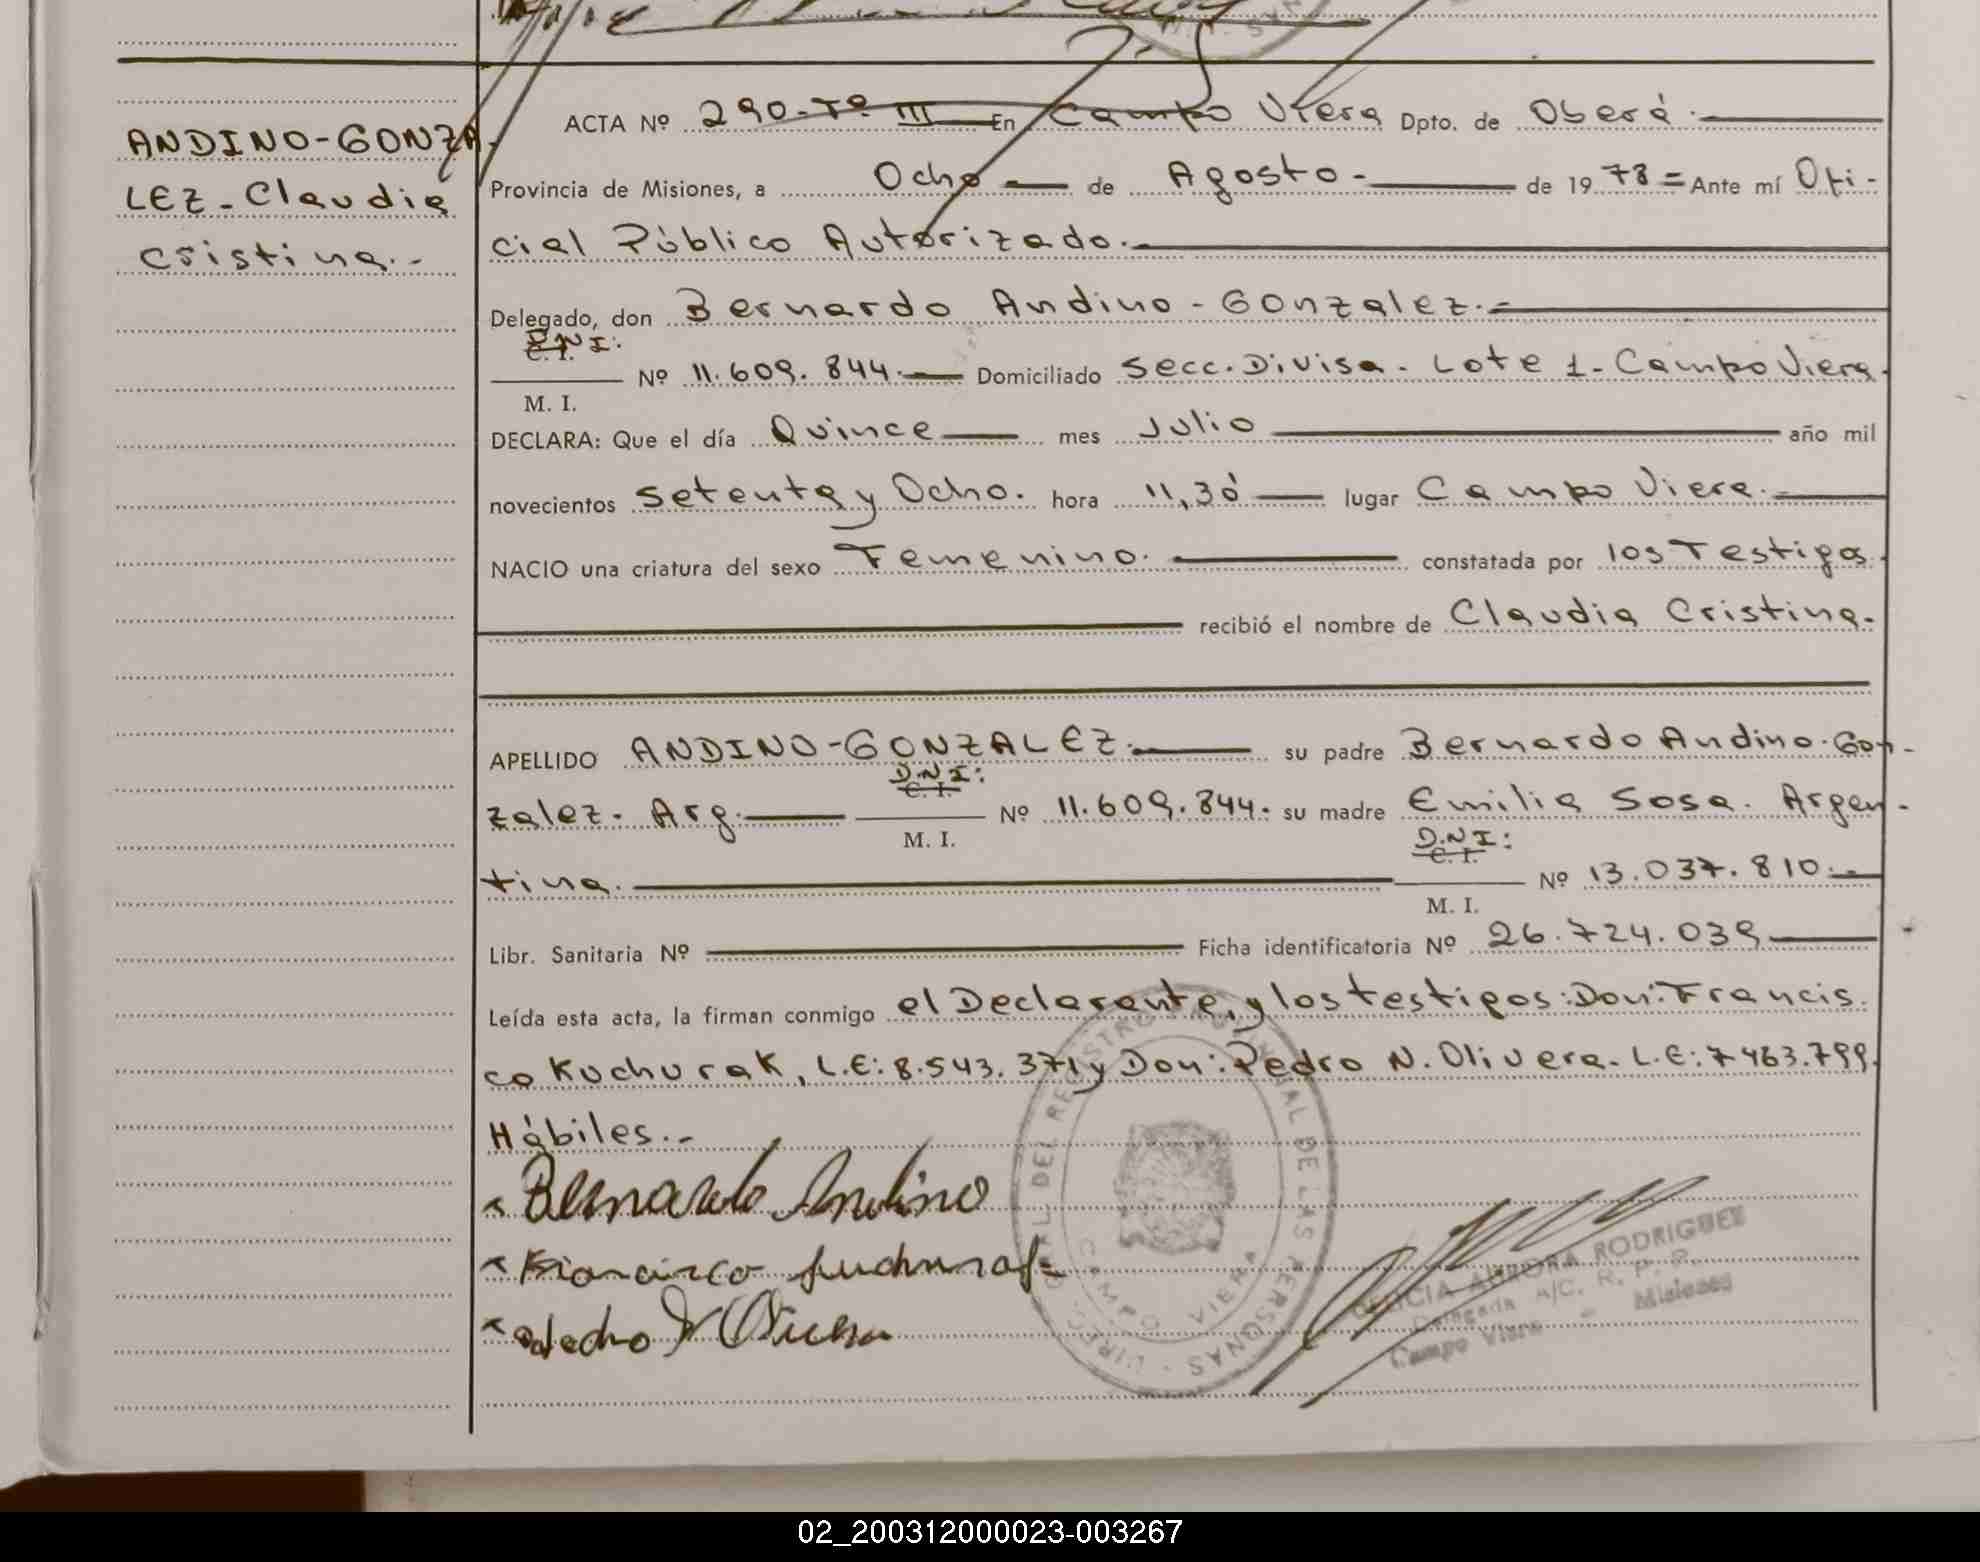 ANDINO-GONZA-
LEZ-Claudia
Cristina.-
ACTA Nº 290-Tº III En Campo Viera Dpto. de Oberá.
Provincia de Misiones, a Ocho de Agosto.- de 1978= Ante mí Ofi-
cial Público Autorizado.-
Delegado, don Bernardo Andino-Gonzalez.-
D.N.I:
C. I.
Nº 11.609.844.- Domiciliado Secc. Divisa. Lote 1- Campo Viera.
M. I.
DECLARA: Que el día Quince mes Julio año mil
novecientos setenta y Ocho. hora 11,30 lugar Campo Viera.-
NACIO una criatura del sexo Femenino. constatada por los Testigos.
recibió el nombre de Claudia Cristina.
APELLIDO ANDINO-GONZALEZ.- su padre Bernardo Andino-Gon-
D.N.I:
C. I.
zalez. Arg. Nº 11.609.844. su madre Emilia Sosa. Argen-
M. I.
D.N.I:
C. I.
tina. Nº 13.037.810.-
M. I.
Libr. Sanitaria Nº Ficha identificatoria Nº 26.724.039
Leída esta acta, la firman conmigo el Declarante, y los testigos: Don: Francis-
co Kuchurak, L.E: 8.543.371 y Don: Pedro N. Olivera. L.E: 7463.799.
Hábiles.-
Bernardo Andino
Francisco Kuchurak
Pedro N Olivera
DEL REGISTRO PROVINCIAL DE LAS PERSONAS
CAMPO VIERA
AURORA RODRIGUEZ
Delegada A/C. R. P. P.
Campo Viera - Misiones
02_200312000023-003267